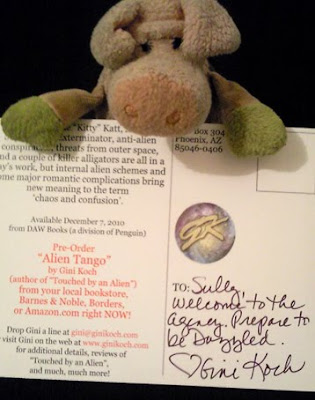 "Kitty" Katt,
exterminator, anti-alien
conspiracies, threats from outer space,
and a couple of killer alligators are all in a
day's work, but internal alien schemes and
some major romantic complications bring
new meaning to the term
'chaos and confusion'.
Available December 7, 2010
from DAW Books (a division of Penguin)
Pre-Order
"Alien Tango"
by Gini Koch
(author of "Touched by an Alien")
from your local bookstore,
Barnes & Noble, Borders,
or Amazon.com right NOW!
Drop Gini a line at gini@ginikoch.com
visit Gini on the web at www.ginikoch.com
for additional details, reviews of
"Touched by an Alien",
and much, much more!
Box 304
Phoenix, AZ
85046-0406
GK
TO: Sully,
Welcome to the
Agency. Prepare to
be Dazzled.
♡Gini Koch